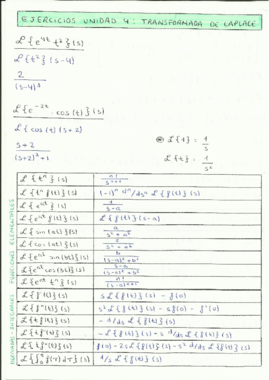 EJERCICIOS UNIDAD 4: TRANSFORMADA DE LAPLACE
ℒ{e^{4t} t²}(s)
ℒ{t²}(s-4)
2
(s-4)³
ℒ{e^{-2t} cos(t)}(s)
ℒ{cos(t)}(s+2)
s+2
(s+2)²+1
ℒ{1} = 1/s
ℒ{t} = 1/s²
FUNCIONES ELEMENTALES
ℒ{t^n}(s) n!/s^{n+1}
ℒ{t^n f(t)}(s) (-1)^n d^n/ds^n ℒ{f(t)}(s)
ℒ{e^{at}}(s) 1/(s-a)
ℒ{e^{at} f(t)}(s) ℒ{f(t)}(s-a)
ℒ{sin(at)}(s) a/(s²+a²)
ℒ{cos(at)}(s) s/(s²+a²)
ℒ{e^{at} sin(bt)}(s) b/((s-a)²+b²)
ℒ{e^{at} cos(bt)}(s) s-a/((s-a)²+b²)
ℒ{e^{at} t^n}(s) n!/(s-a)^{n+1}
ℒ{f'(t)}(s) sℒ{f(t)}(s) - f(0)
ℒ{f''(t)}(s) s²ℒ{f(t)}(s) - sf(0) - f'(0)
ℒ{t f(t)}(s) -d/ds ℒ{f(t)}(s)
ℒ{t f'(t)}(s) -ℒ{f(t)}(s) - s d/ds ℒ{f(t)}(s)
ℒ{t f''(t)}(s) f(0) - 2sℒ{f(t)}(s) - s² d/ds ℒ{f(t)}(s)